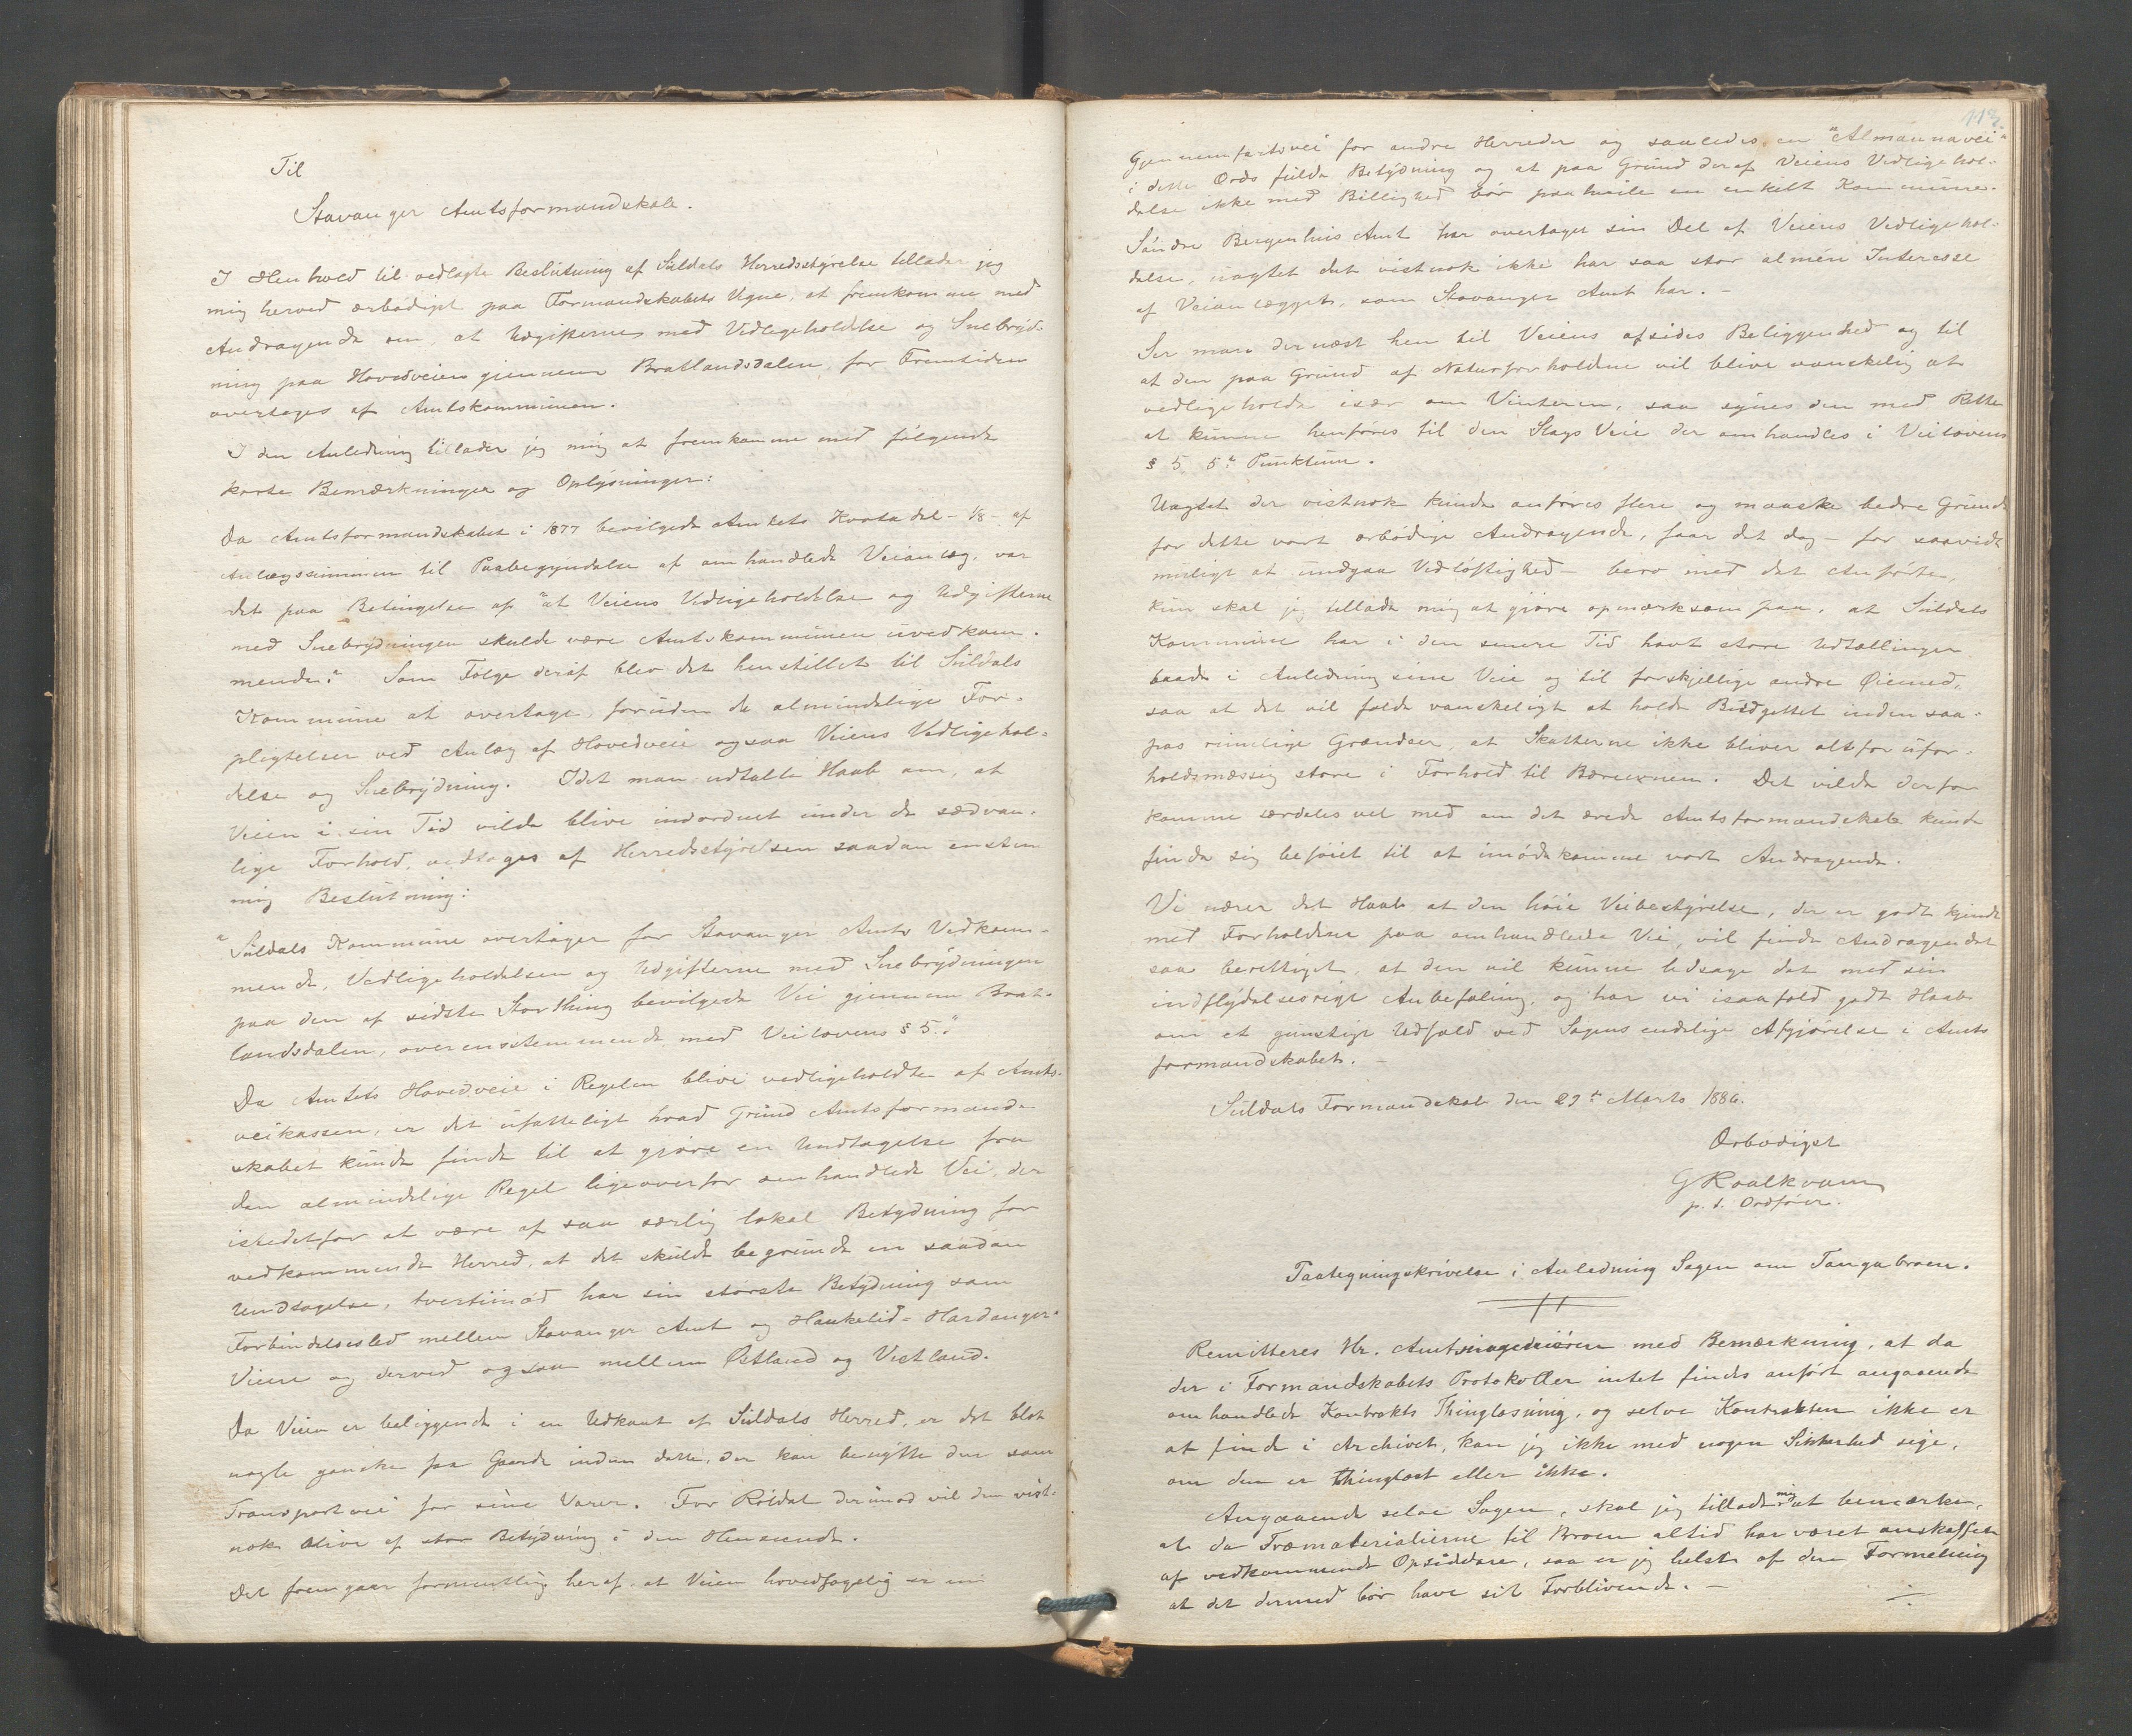 Til
Stavanger Amtsformandskab.
I Henhold til vedlagte Beslutning af Suldals Herredsstyrelse tillader jeg
mig herved ærbødigst paa Formandskabets Vegne, at fremkomme med
Andragende om, at Udgifterne med Vedligeholdelse og Snebryd-
ning paa Hovedveien gjennem Bratlandsdalen, for Fremtiden
overtages af Amtskommunen.
I den Anledning tillader jeg mig at fremkomme med følgende
korte Bemærkninger og Oplysninger:
Da Amtsformandskabet i 1877 bevilgede Amtets Kvotadel - 1/8 - af
Anlægssummen til Paabegyndelse af omhandlede Veianlæg, var
det paa Betingelse af "at Veiens Vedligeholdelse og Udgifterne
med Snebrydningen skulde være Amtskommunen uvedkom-
mende." Som Følge deraf blev det henstillet til Suldals
Kommune at overtage, foruden de almindelige For-
pligtelser ved Anlæg af Hovedveie ogsaa Veiens Vedligehol-
delse og Snebrydning. Idet man udtalte Haab om, at
Veien i sin Tid vilde blive indordnet under de sædvan-
lige Forhold, vedtoges af Herredsstyrelsen saadan enstem
mig Beslutning:
"Suldals Kommune overtager for Stavanger Amts Vedkom-
mende, Vedligeholdelsen og Udgifterne med Snebrydningen
paa den af sidste Storthing bevilgede Vei gjennem Brat-
landsdalen, overensstemmende med Veilovens § 5."
Da Amtets Hovedveie i Regelen blive vedligeholdte af Amts-
veikassen, er det ufatteligt hvad Grund Amtsformand-
skabet kunde finde til at gjøre en Undtagelse fra
den almindelige Regel ligeoverfor omhandlede Vei, der
istedetfor at være af saa særlig lokal Betydning for
vedkommende Herred, at det skulde begrunde en saadan
Undtagelse, tvertimod har sin største Betydning som
Forbindelsesled mellem Stavanger Amt og Haukelid-Hardanger-
Veien og derved ogsaa mellem Østland og Vestland.
Da Veien er beliggende i en Udkant af Suldals Herred, er det blot
nogle ganske faa Gaarde inden dette, der kan benytte den som
Transportvei for sine Varer. For Röldal derimod vil den vist-
nok blive af stor Betydning i den Henseende.
Det fremgaar formentlig heraf, at Veien hovedsagelig er en
113.
Gjennemfartsvei for andre Herreder og saaledes en "Almannavei"
i dette Ords fulde Betydning og at paa Grund deraf Veiens Vedligehol-
delse ikke med Billighed bør paahvile en enkelt Kommune.
Søndre Bergenhus Amt har overtaget sin Del af Veiens Vedligehol-
delse, uagtet det vistnok ikke har saa stor almen Interesse
af Veianlægget, som Stavanger Amt har. -
Ser man dernæst hen til Veiens afsides Beliggenhed og til
at den paa Grund af Naturforholdene vil blive vanskelig at
vedligeholde især om Vinteren, saa synes den med Rette
at kunne henføres til den Slags Veie der omhandles i Veilovens
§ 5 5te Punktum.
Uagtet der vistnok kunde anføres flere og maaske bedre Grunde
for dette vort ærbødige Andragende, faar det dog - for saavidt
muligt at undgaa Vidløftighed - bero med det Anførte,
kun skal jeg tillade mig at gjøre opmærksom paa, at Suldals
Kommune har i den senere Tid havt store Udtællinger
baade i Anledning sine Veie og til forskjellige andre Øiemed,
saa at det vil falde vanskeligt at holde Budgettet inden saa-
pas rimelige Grændser, at Skatterne ikke bliver altfor ufor-
holdsmæssig store i Forhold til Bærevnen. Det vilde derfor
komme særdeles vel med om det ærede Amtsformandskab kunde
finde sig beføiet til at imødekomme vort Andragende.
Vi nærer det Haab at den høie Veibestyrelse, der er godt kjendt
med Forholdene paa omhandlede Vei, vil finde Andragendet
saa berettiget, at den vil kunne ledsage det med sin
indflydelsesrige Anbefaling, og har vi isaafald godt Haab
om et gunstigt Udfald ved Sagens endelige Afgjørelse i Amts
formandskabet. -
Suldals Formandskab den 29de Marts 1886.
Ærbødigst
G Roalkvam
p. t. Ordfører.
Paategningskrivelse i Anledning Sagen om Tangabroen.
Remitteres Hr. Amtsingeniøren med Bemærkning, at da
der i Formandskabets Protokoller intet findes anført angaaende
omhandlede Kontrakts Thinglæsning, og selve Kontrakten ikke er
at finde i Archivet, kan jeg ikke med nogen Sikkerhed sige,
om den er thinglæst eller ikke.
Angaaende selve Sagen, skal jeg tillade mig at bemærke,
at da Træmaterialierne til Broen altid har været anskaffede
af vedkommende Opsiddere, saa er jeg helst af den Formening
at det dermed bør have sit Forblivende. -